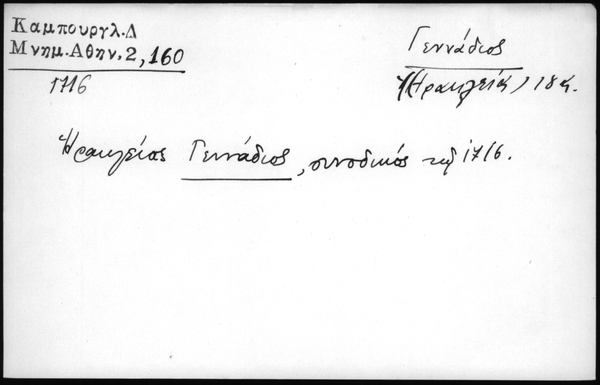 Καμπουργλ.Δ
Μνημ.Αθην.2,160
1716
Γεννάδιος
(Ἡρακλείας) 18 α.
Ἡρακλείας Γεννάδιος, συνοδικός τῷ 1716.